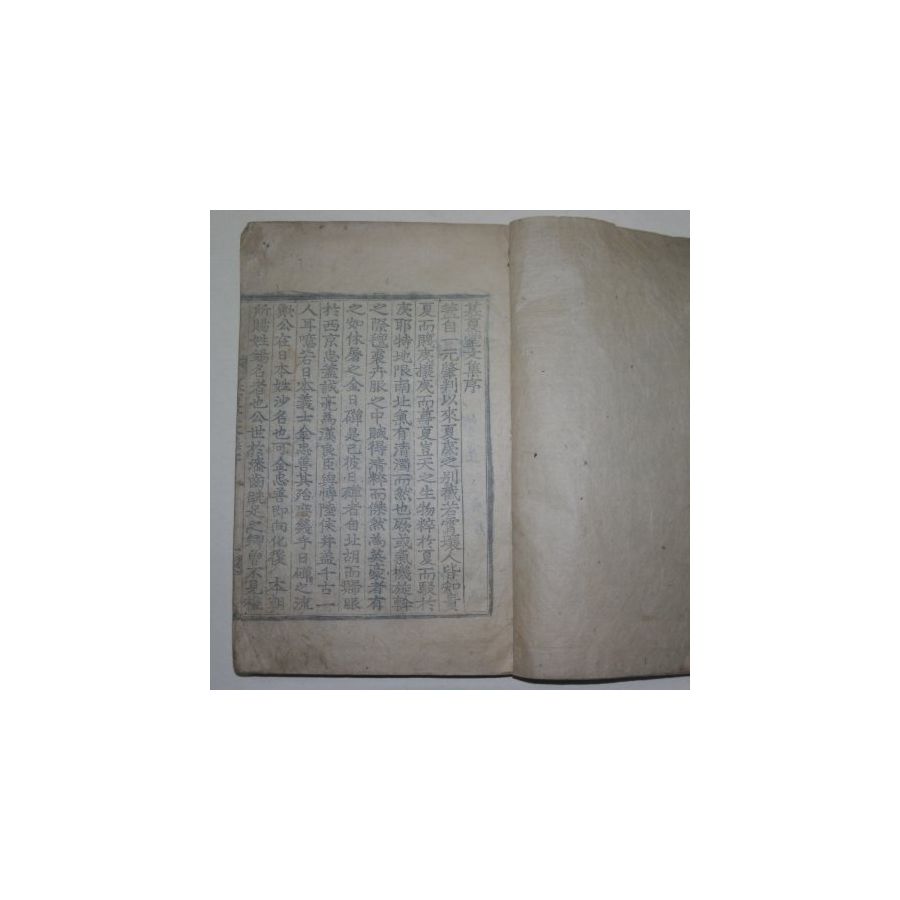 慕夏堂文集序
粤自一元肇判以來夏裔之別截若霄壤人皆知貴
夏而賤裔攘裔而尊夏豈天之生物粹於夏而駁於
裔耶特地限南北氣有清濁而然也厥或氣機旋斡
之際醜裔卉服之中賦得清粹而傑然爲英豪者有
之如休屠之金日磾是已彼日磾者自北胡而歸眼
於西京忠藎誠亮爲漢良臣與博陸侯並益千古一
人耳噫若日本義士金忠善其殆庶幾乎日磾之流
歟公在日本姓沙名也可金忠善卽向化後 本朝
所賜姓錫名者也公世於 齒 足之鄕 不見